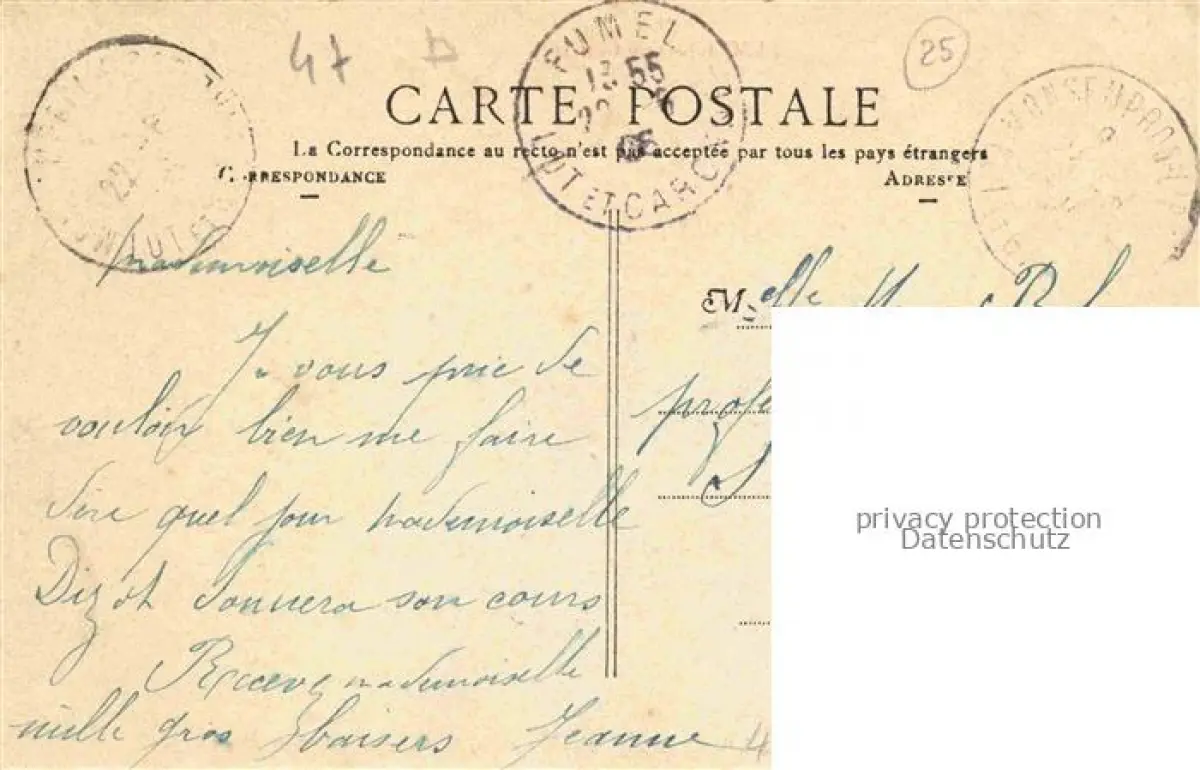 47
25
FUMEL
13 55
LOT ET GAR
CARTE POSTALE
La Correspondance au recto n'est pas acceptée par tous les pays étrangers
CORRESPONDANCE
ADRESSE
Mademoiselle
Je vous prie de
vouloir bien me faire
dire quel jour Mademoiselle
Dizot donnera son cours
Recevez mademoiselle
mille gros baisers Jeanne
Melle
profe
privacy protection
Datenschutz